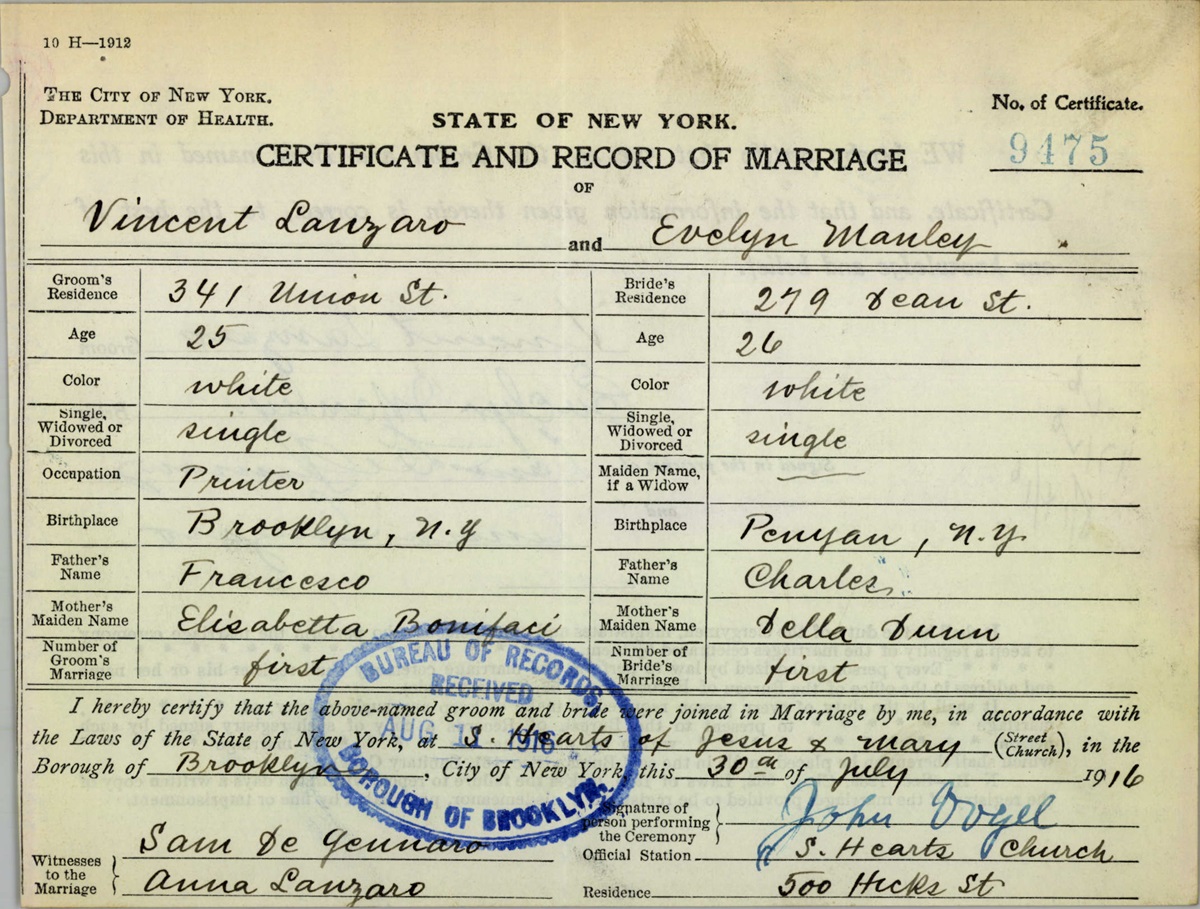 10 H—1912
THE CITY OF NEW YORK.
DEPARTMENT OF HEALTH.
STATE OF NEW YORK.
No. of Certificate.
9475
CERTIFICATE AND RECORD OF MARRIAGE
OF
Vincent Lanzaro and Evelyn Manley
Groom's Residence 341 Union St. Bride's Residence 279 Dean St.
Age 25 Age 26
Color white Color white
Single, Widowed or Divorced single Single, Widowed or Divorced single
Occupation Printer Maiden Name, if a Widow
Birthplace Brooklyn, N.Y Birthplace Penyan, N.Y.
Father's Name Francesco Father's Name Charles
Mother's Maiden Name Elisabetta Bonifaci Mother's Maiden Name Della Dunn
Number of Groom's Marriage first Number of Bride's Marriage first
BUREAU OF RECORDS
RECEIVED
AUG 11 1916
BOROUGH OF BROOKLYN.
I hereby certify that the above-named groom and bride were joined in Marriage by me, in accordance with
the Laws of the State of New York, at S. Hearts of Jesus & Mary (Street Church), in the
Borough of Brooklyn, City of New York, this 30th of July 1916
Signature of person performing the Ceremony John Vogel
Witnesses to the Marriage Sam De Gennaro
Anna Lanzaro
Official Station S. Hearts Church
Residence 500 Hicks St